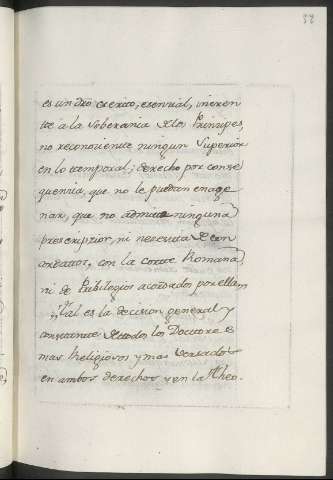 es un dro cierto, esensial, ineren
te á la Soberania de los Prinsipes,
no reconosiente ningun Superior
en lo temporal; derecho por conse
quensia, que no le puedan enage
nar, que no admite ninguna
prescripsion, ni nesesita de con
cordatos, con la corte Romana
ni de Pribilegios acordados por ella
Tal es la decision general y
constante de todos los Doctores
mas Religiosos y mas versados
en ambos derechos y en la Theo.